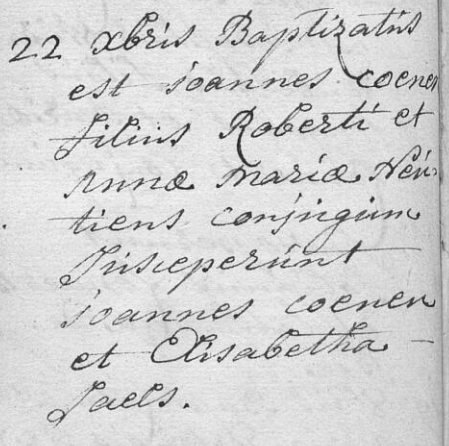 22 xbris Baptizatus
est joannes coenen
filius Roberti et
Annæ mariæ Neu-
tiens conjugum
Susceperunt
joannes coenen
et Elisabetha -
Jaels.